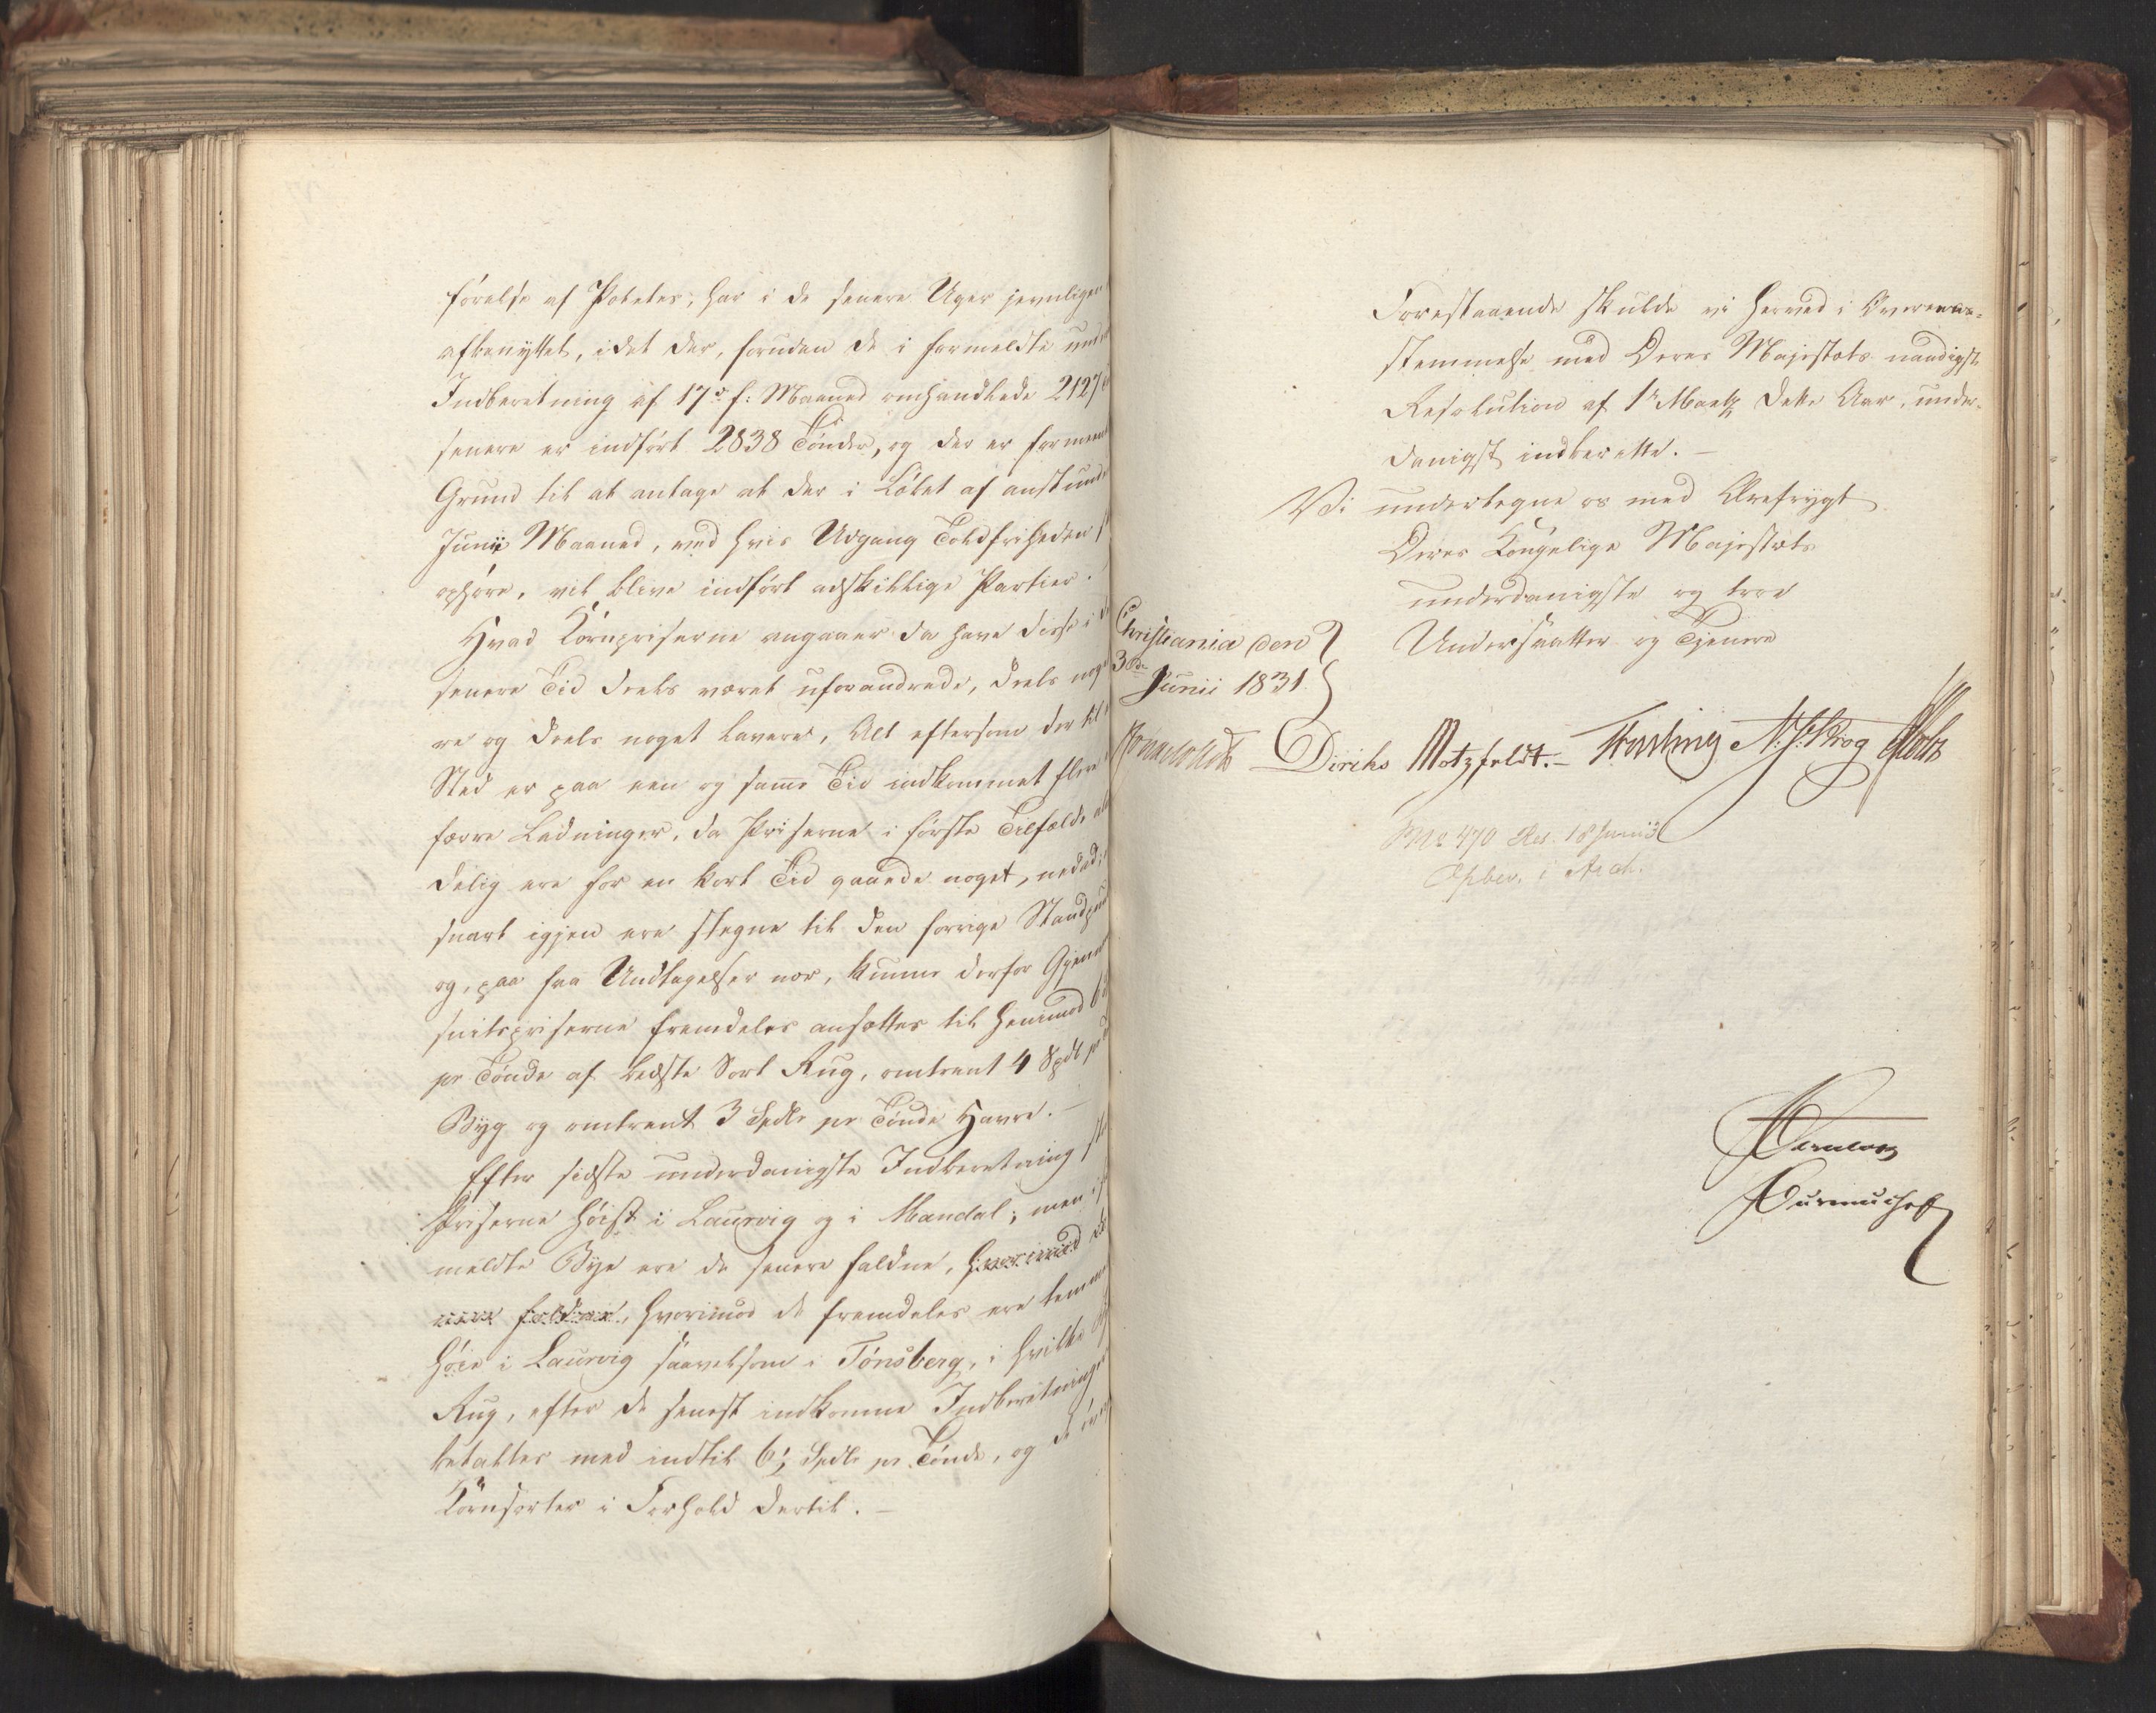 førelse af Poteter, har i de senere Uger jevnligen
afbenyttet, idet der, foruden de i formeldte
Indberetning af 17de f: Maaned omhandlede 2127
senere er indført 2838 Tønder, og der er formeent
Grund til at antage at der i Løbet af anstund
Junii Maaned, ved hvis Udgang Toldfriheden
ophøre, vil blive indført adskillige Partier.
Hvad Kornpriserne angaaer da have disse i
senere Tid deels været uforandrede, deels
re og deels noget lavere, Alt eftersom der til
Sted er paa een og samme Tid indkommet flere
færre Ladninger, da Priserne i første Tilfælde
delig ere for en kort Tid gaaede noget, nedad,
snart igjen ere stegne til den forrige Standpun
og, paa faa Undtagelser nær, kunne derfor Gjennem
snitspriserne fremdeles ansættes til henimod 6
pr Tønde af bedste Sort Rug, omtrent 4 Spdl pr
Byg og omtrent 3 Spdlr pr Tønde Havre. –
Efter sidste underdanigste Indberetning
Priserne høist i Laurvig og i Mandal; men
meldte Bye ere de senere faldne, hvorimod de
ere faldne, hvorimod de fremdeles ere temme
høie i Laurvig saavelsom i Tønsberg, i hvilke
Rug, efter de senest indkomne Indberetninger
betaltes med indtil 6½ Spdlr pr Tønde, og de øvr
Kornsorter i Forhold dertil. –
Forestaaende skulde vi herved i Overeens-
stemmelse med Deres Majestæts naadigste
Resolution af 1r Martz dette Aar, under-
danigst indberette. –
Vi undertegne os med Ærefrygt
Deres Kongelige Majestæts
underdanigste og troe
Undersaatter og Tjenere
Christiania den
3die Junii 1831.
Diriks Motzfeldt. – Fasting N: J: Krog Holst
No 470 Res. 18 Junii
Opbev. i Arch.